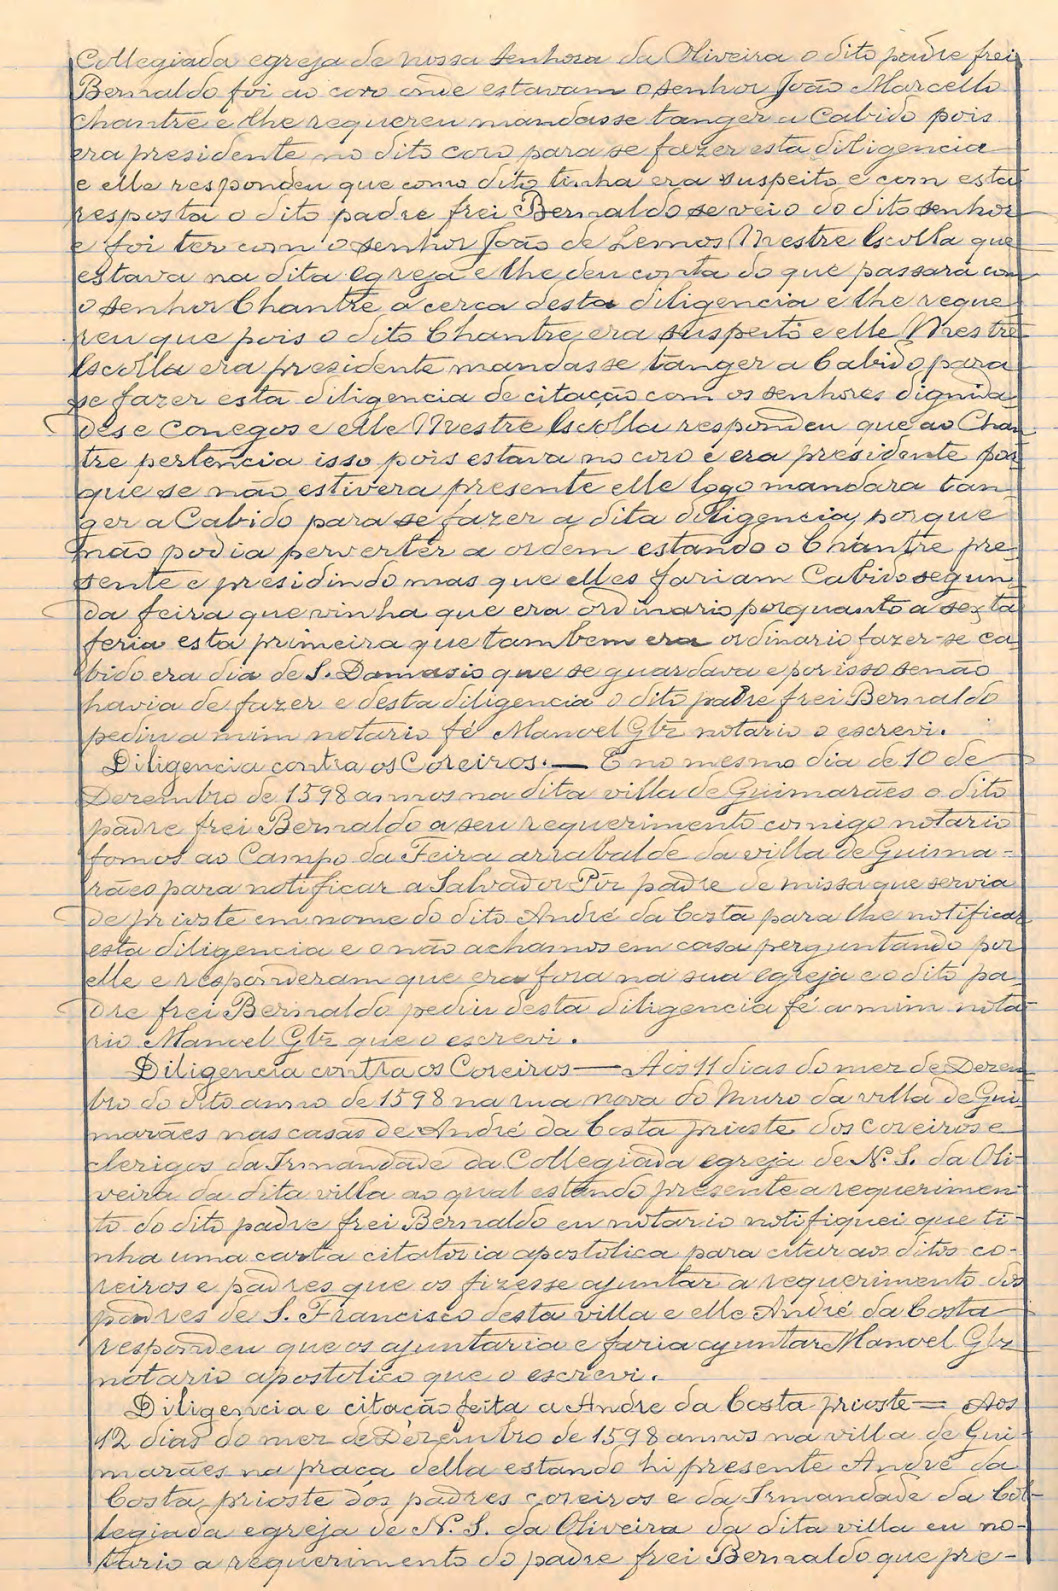 Collegiada egreja de nossa senhora da Oliveira o dito padre frei
Bernaldo foi ao coro onde estavam o senhor João Marcello
chantre e lhe requereu mandasse tanger a Cabido pois
era presidente no dito coro para se fazer esta diligencia
e elle respondeu que como dito tinha era suspeito e com esta
resposta o dito padre frei Bernaldo se veio do dito senhor
e foi ter com o senhor João de Lemos Mestre Escolla que
estava na dita egreja e lhe deu conta do que passara com
o senhor Chantre á cerca desta diligencia e lhe reque
reu que pois o dito Chantre era suspeito e elle Mestre
Escolla era presidente mandasse tanger a Cabido para
se fazer esta diligencia de citação com os senhores dignida
des e Conegos e elle Mestre Escolla respondeu que ao Chan
tre pertencia isso pois estava no coro e era presidente por
que se não estivera presente elle logo mandara tan
ger a Cabido para se fazer a dita diligencia, porque
não podia perverter a ordem estando o Chantre pre
sente e presidindo mas que elles fariam Cabido segun
da feira que vinha que era ordinario porquanto a sexta
feria esta primeira que tambem era ordinario fazer-se ca
bido era dia de S. Damasio que se guardava e por isso se não
havia de fazer e desta diligencia o dito padre frei Bernaldo
pediu a mim notario fé Manoel Glz notario o escrevi.
Diligencia contra os Coreiros. — E no mesmo dia de 10 de
Dezembro de 1598 annos na dita villa de Guimarães o dito
padre frei Bernaldo a seu requerimento comigo notario
fomos ao Campo da Feira arrabalde da villa de Guima-
rães para notificar a Salvador Piz padre de missa que servia
de prioste em nome do dito André da Costa para lhe notificar
esta diligencia e o não achamos em casa perguntando por
elle e responderam que era fora na sua egreja e o dito pa
dre frei Bernaldo pediu desta diligencia fé a mim nota
rio Manoel Glz que o escrevi.
Diligencia contra os Coreiros — Aos 11 dias do mez de Dezem
bro do dito anno de 1598 na rua nova do Muro da villa de Gui
marães nas casas de André da Costa prioste dos coreiros e
clerigos da Irmandade da Collegiada egreja de N. S. da Oli-
veira da dita villa ao qual estando presente a requerimen
to do dito padre frei Bernaldo eu notario notifiquei que ti-
nha uma carta citatoria apostolica para citar aos ditos co-
reiros e padres que os fizesse ajuntar a requerimento dos
padres de S. Francisco desta villa e elle André da Costa
respondeu que os ajuntaria e faria ajuntar Manoel Glz
notario apostolico que o escrevi.
Diligencia e citação feita a Andre da Costa prioste = Aos
12 dias do mez de Dezembro de 1598 annos na villa de Gui
marães na praça della estando hi presente André da
Costa, prioste dos padres coreiros e da Irmandade da Col
legiada egreja de N. S. da Oliveira da dita villa eu no-
tario a requerimento do padre frei Bernaldo que pre-